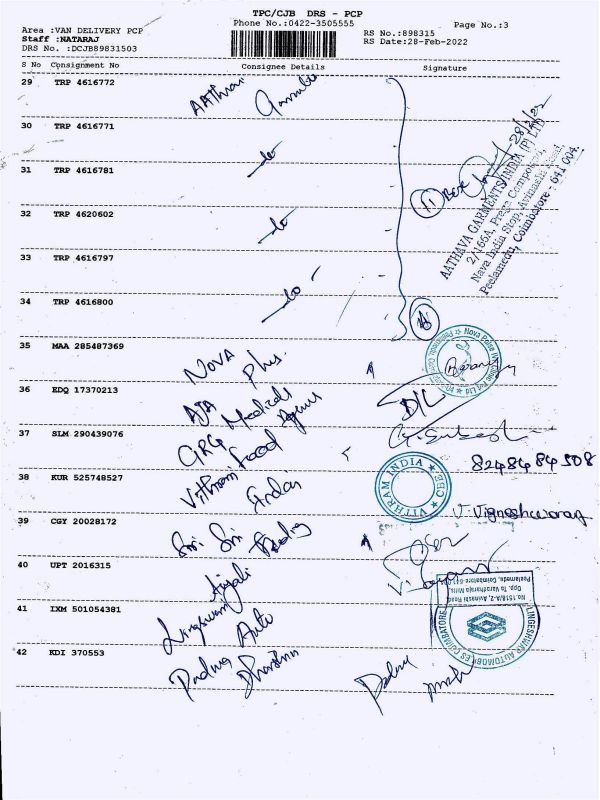 TPC/CJB DRS - PCP
Phone No.:0422-3505555
Page No.:3
Area :VAN DELIVERY PCP
Staff :NATARAJ
DRS No. :DCJB89831503
RS No.:898315
RS Date:28-Feb-2022
S No Consignment No Consignee Details Signature
29 TRP 4616772
30 TRP 4616771
31 TRP 4616781
32 TRP 4620602
33 TRP 4616797
34 TRP 4616800
28/2/22
AATHAVA GARMENTS INDIA (P) LTD
2/166A, Press Compound,
Nava India Stop, Avinashi Road,
Peelamedu, Coimbatore - 641 004.
35 MAA 285487369 NOVA Plus.
36 EDQ 17370213 AJA Medicals
37 SLM 290439076 GRG Food
8248484508
38 KUR 525748527 Vithram India
VITHRAM INDIA CBE
V. Vigneshwaran
39 CGY 20028172 Sri Sri
40 UPT 2016315 Anjali
41 IXM 501054381 Lingeswar Auto
No.1518/A-2, Avinashi Road,
Opp. To Varadharaja Mills,
Peelamedu, Coimbatore-641 004
LINGESHWAR AUTOMOBILES COIMBATORE
42 KDI 370553 Padma